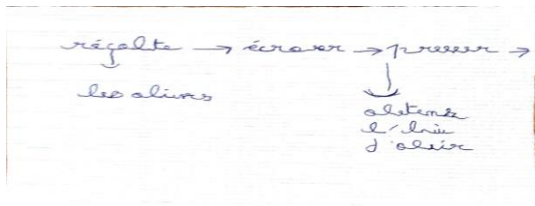 régalte → écraser → presser →
les olives
obtenir
l'huie
d'oleir